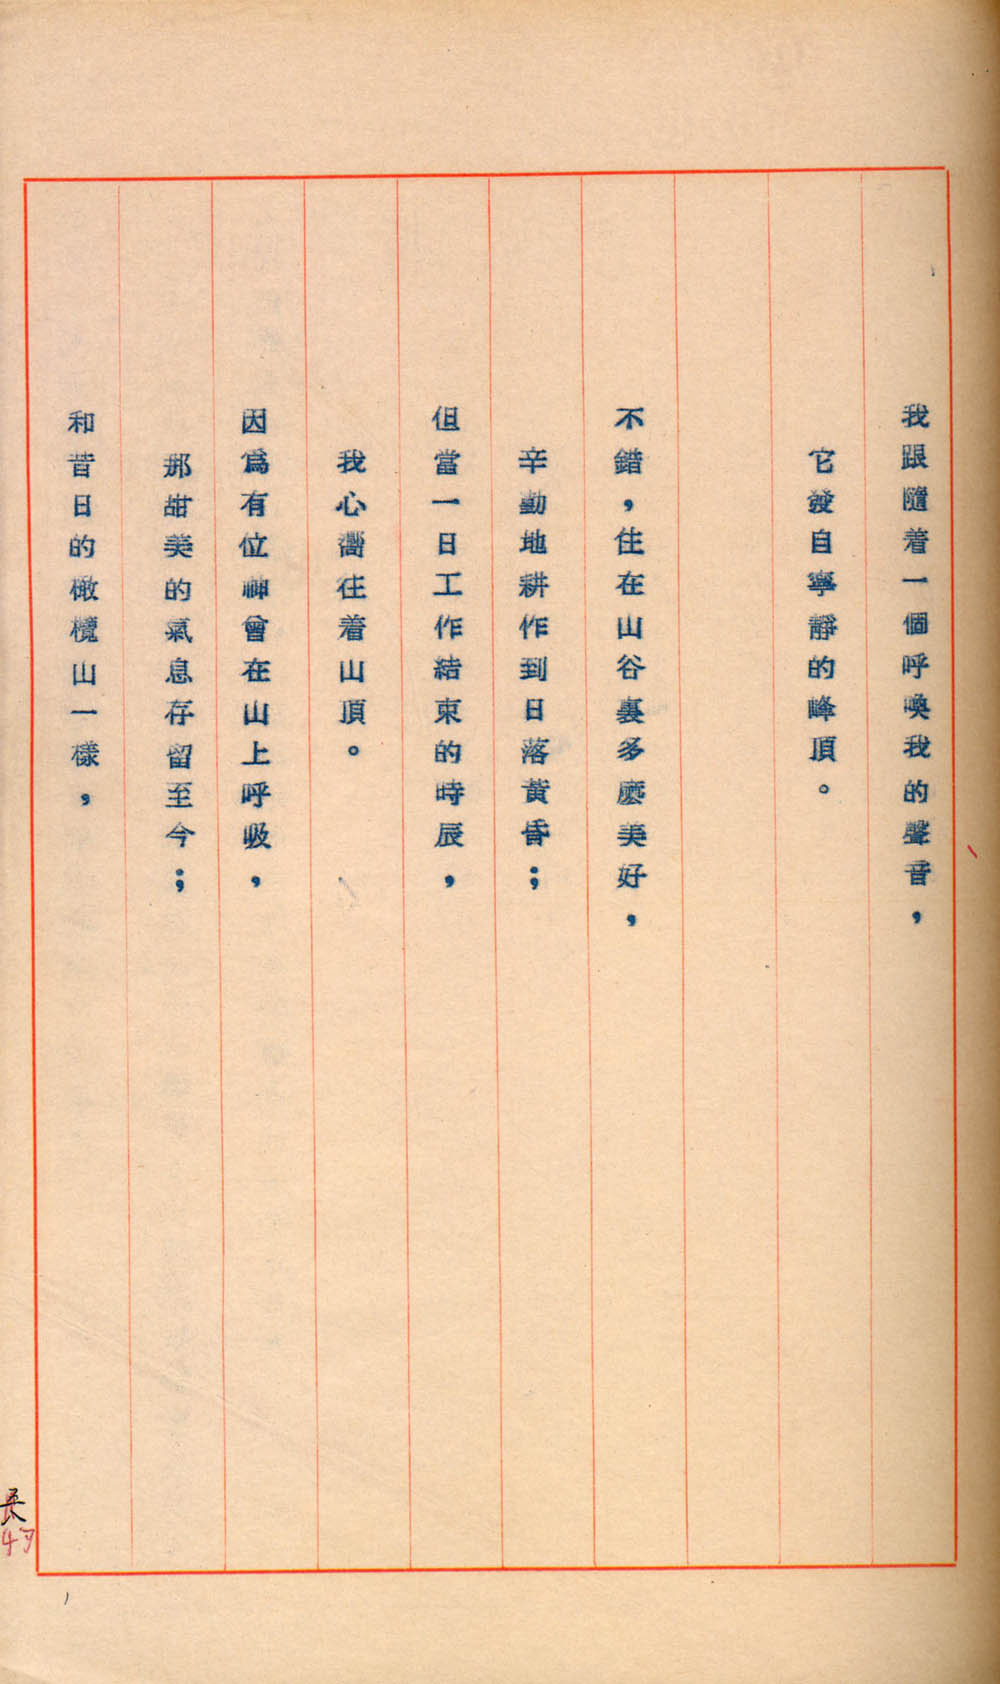 我跟隨着一個呼喚我的聲音，
它發自寧靜的峰頂。
不錯，住在山谷裏多麽美好，
辛勤地耕作到日落黃昏；
但當一日工作結束的時辰，
我心嚮往着山頂。
因爲有位神曾在山上呼吸，
那甜美的氣息存留至今；
和昔日的橄欖山一樣，
長
47